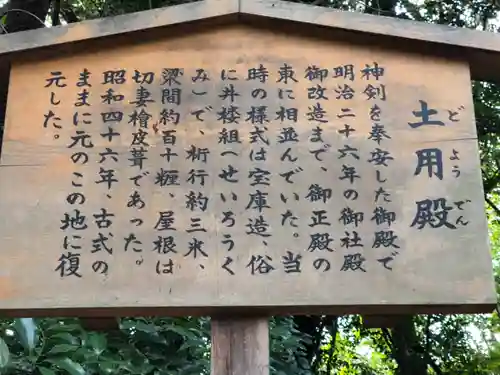 土用殿
ど よう でん
神剣を奉安した御殿で
明治二十六年の御社殿
御改造まで、御正殿の
東に相並んでいた。当
時の様式は宝庫造、俗
に井楼組へせいろうく
み)で、桁行約三米、
梁間約百十糎、屋根は
切妻檜皮葺であった。
昭和四十六年、古式の
ままに元のこの地に復
元した。